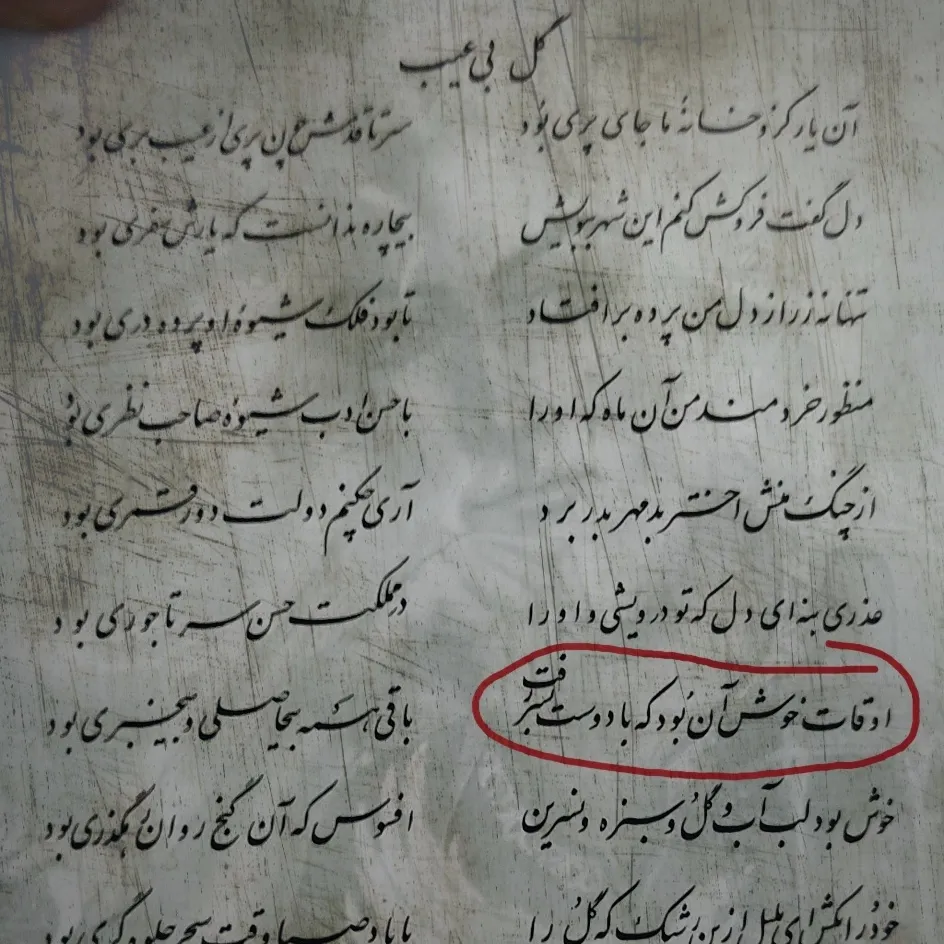 گل بی عیب
آن یار کزو خانهٔ ما جای پری بود سر تا قدمش چون پری از عیب بری بود
دل گفت فروکش کنم این شهر ببویش بیچاره ندانست که یارش سفری بود
تنها نه ز راز دل من پرده برافتاد تا بود فلک شیوهٔ او پرده دری بود
منظور خردمند من آن ماه که او را با حسن ادب شیوهٔ صاحب نظری بود
از چنگ منش اختر بد مهر بدر برد آری چکنم دولت دور قمری بود
عذری بنه ای دل که تو درویشی و او را در مملکت حسن سر تاجوری بود
اوقات خوش آن بود که با دوست بسر رفت باقی همه بیحاصلی و بیخبری بود
خوش بود لب آب و گل و سبزه و نسرین افسوس که آن گنج روان رهگذری بود
خود را بکش ای بلبل ازین رشک که گل را با باد صبا وقت سحر جلوه گری بود